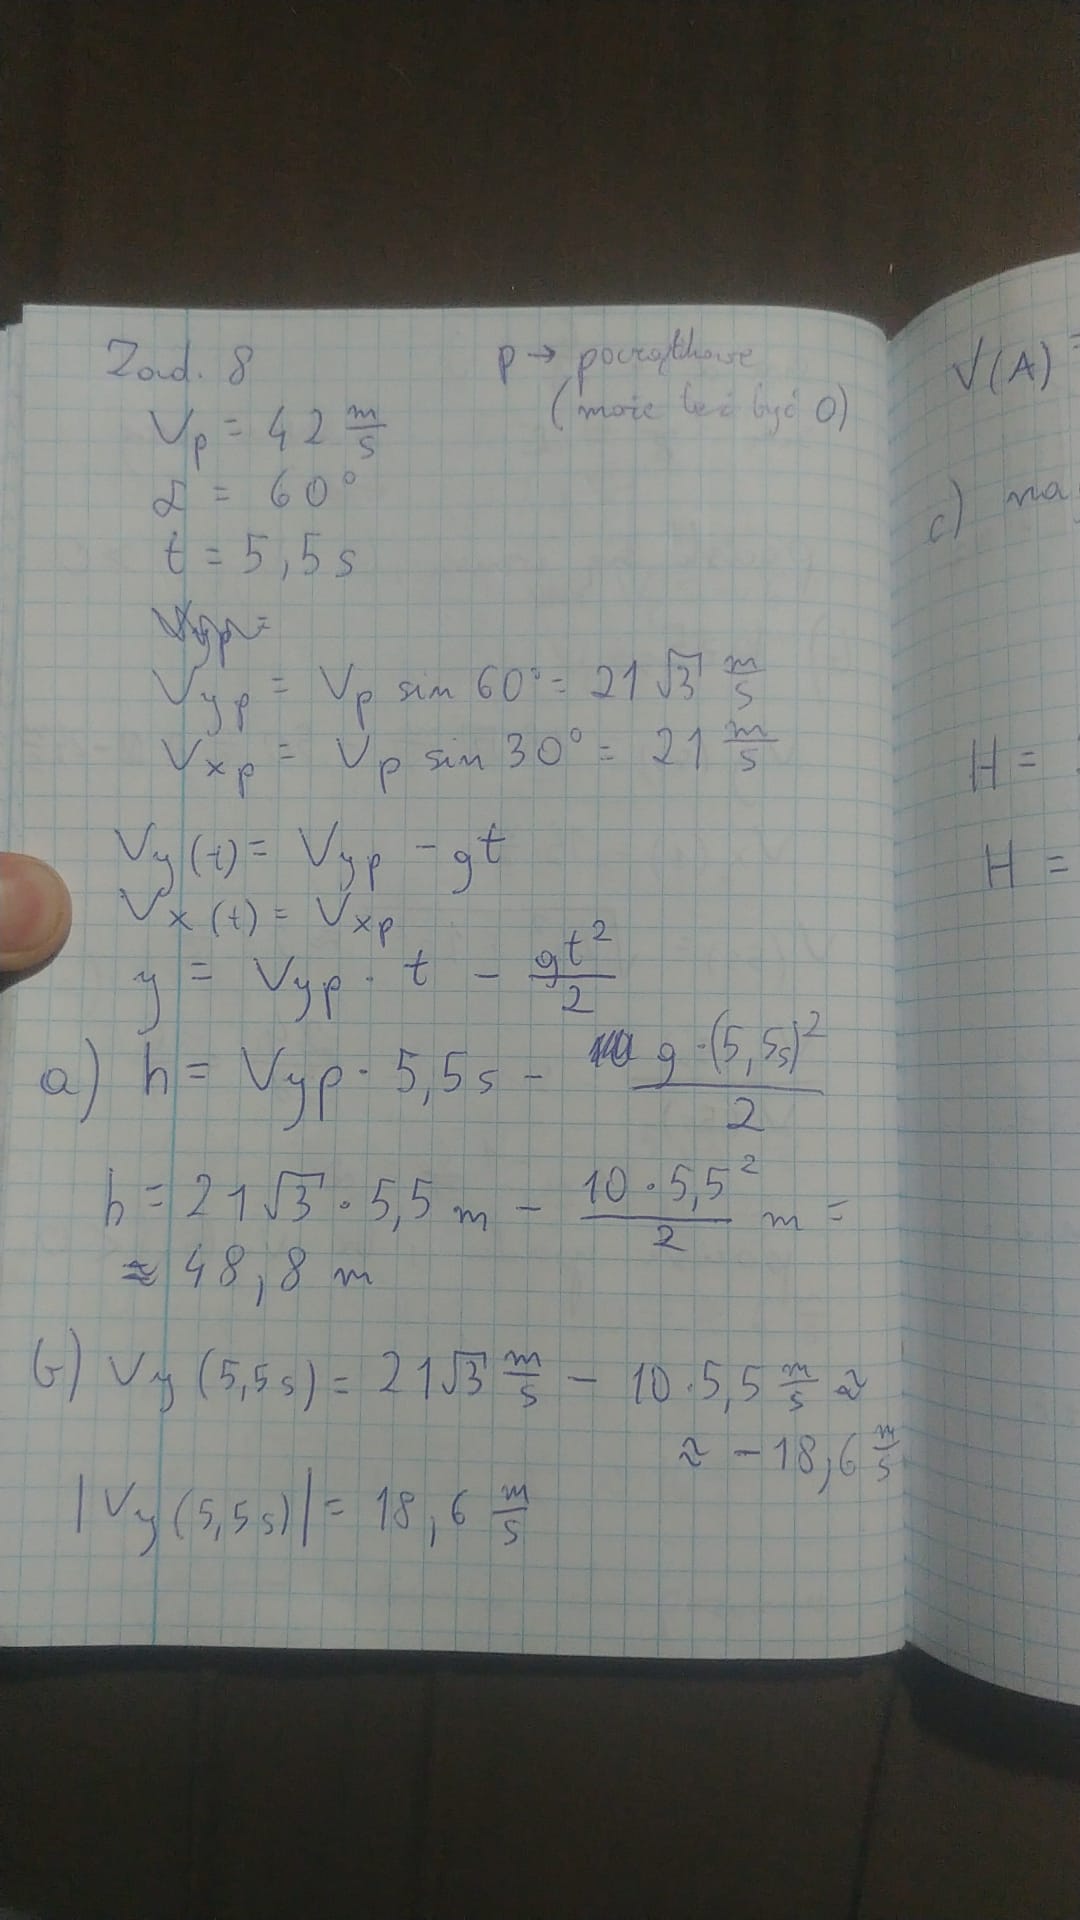 Zad. 8
p → początkowe
(może też być 0)
Vp = 42 m/s
α = 60°
t = 5,5 s
Vyp = Vp sin 60° = 21√3 m/s
Vxp = Vp sin 30° = 21 m/s
Vy(t) = Vyp - gt
Vx(t) = Vxp
y = Vyp · t - gt²/2
a) h = Vyp · 5,5 s - g·(5,5s)²/2
h = 21√3 · 5,5 m - 10·5,5²/2 m =
≈ 48,8 m
b) Vy (5,5 s) = 21√3 m/s - 10·5,5 m/s ≈
≈ -18,6 m/s
|Vy (5,5 s)| = 18,6 m/s
V(A) =
c) na
H =
H =